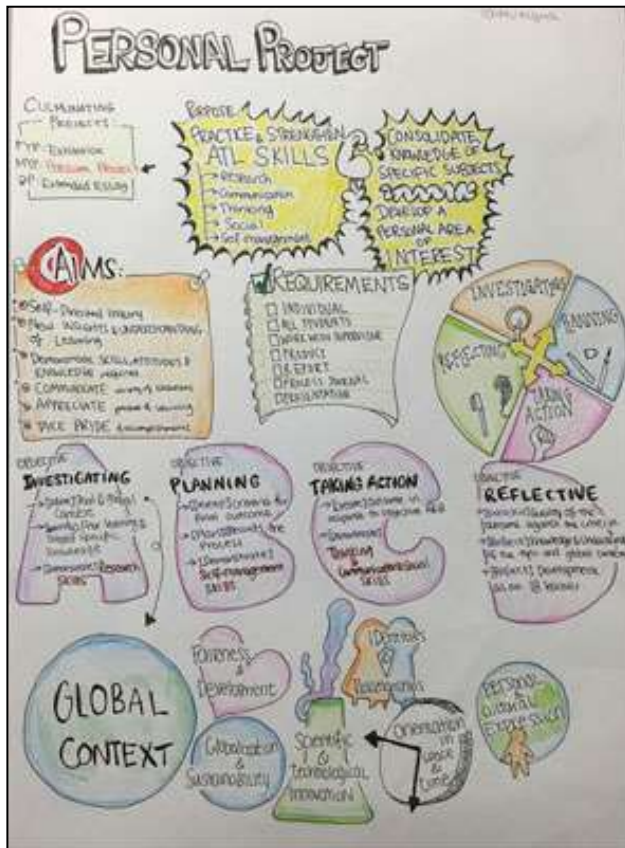 PERSONAL PROJECT
CULMINATING
PROJECTS:
PYP: Exhibition
MYP: Personal Project
DP: Extended Essay
PURPOSE:
PRACTICE & STRENGTHEN
ATL SKILLS
Research
Communication
Thinking
Social
Self-management
CONSOLIDATE
KNOWLEDGE OF
SPECIFIC SUBJECTS
DEVELOP A
PERSONAL AREA
OF
INTEREST
AIMS:
Self-Directed Inquiry
New INSIGHTS & UNDERSTANDING
of Learning
Demonstrate SKILLS, ATTITUDES &
KNOWLEDGE
COMMUNICATE
APPRECIATE process of learning
TAKE PRIDE
REQUIREMENTS
INDIVIDUAL
ALL STUDENTS
WORK WITH SUPERVISOR
PRODUCT
REPORT
PROCESS JOURNAL
PRESENTATION
INVESTIGATING
PLANNING
REFLECTING
TAKING
ACTION
OBJECTIVE
INVESTIGATING
Goal & Global
Context
Prior learning &
Subject Specific
Knowledge
Research
SKILLS
OBJECTIVE
PLANNING
criteria for
final outcome
the
Process
Self-management
SKILLS
OBJECTIVE
TAKING ACTION
outcome in
response to
Thinking
& Communication & Social
SKILLS
OBJECTIVE
REFLECTIVE
quality of the
outcome against the criteria
of the topic and global context
Development
GLOBAL
CONTEXT
Fairness
&
Development
Globalization
&
Sustainability
Scientific
&
technological
Innovation
Identities
&
Relationships
Orientation
in
space &
time
Personal
&
Cultural
Expression